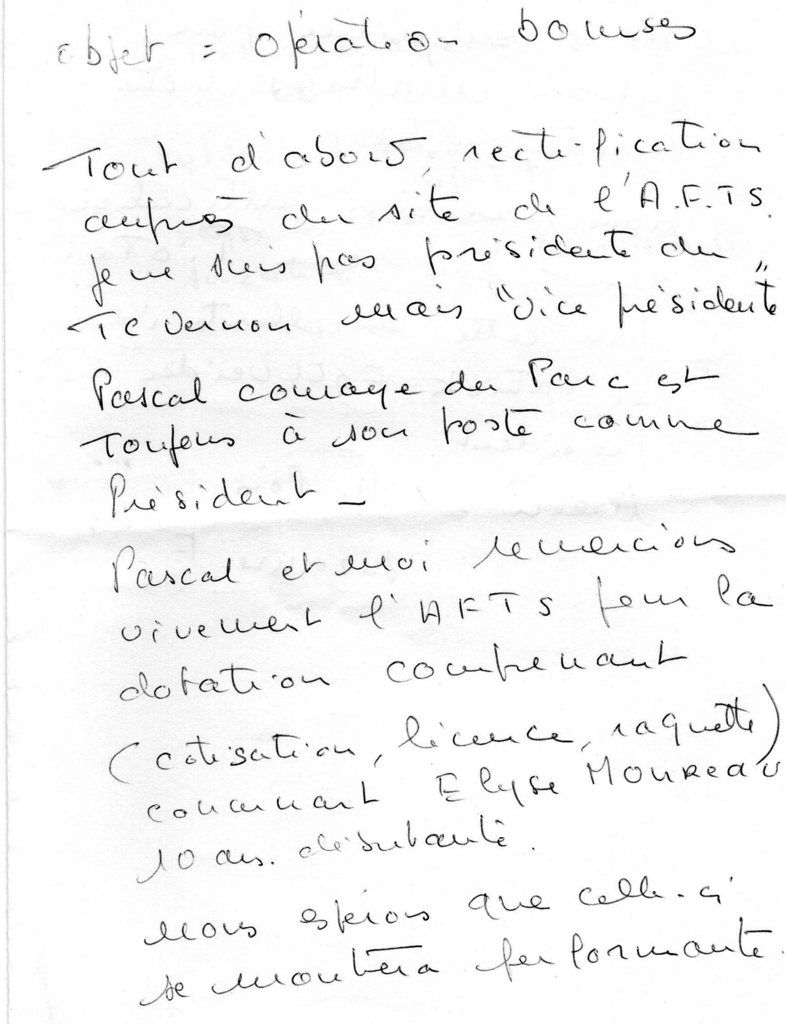 objet = opération bourses
Tout d'abord, rectification
auprès du site de l'A.F.T.S.
je ne suis pas présidente du
TC Vernon mais "vice présidente"
Pascal du Parc est
toujours à son poste comme
Président -
Pascal et moi remercions
vivement l'AFTS pour la
dotation comprenant
(cotisation, licence, raquette)
concernant Elyse MOUREAU
10 ans. débutante.
Nous espérons que celle-ci
se montrera performante.